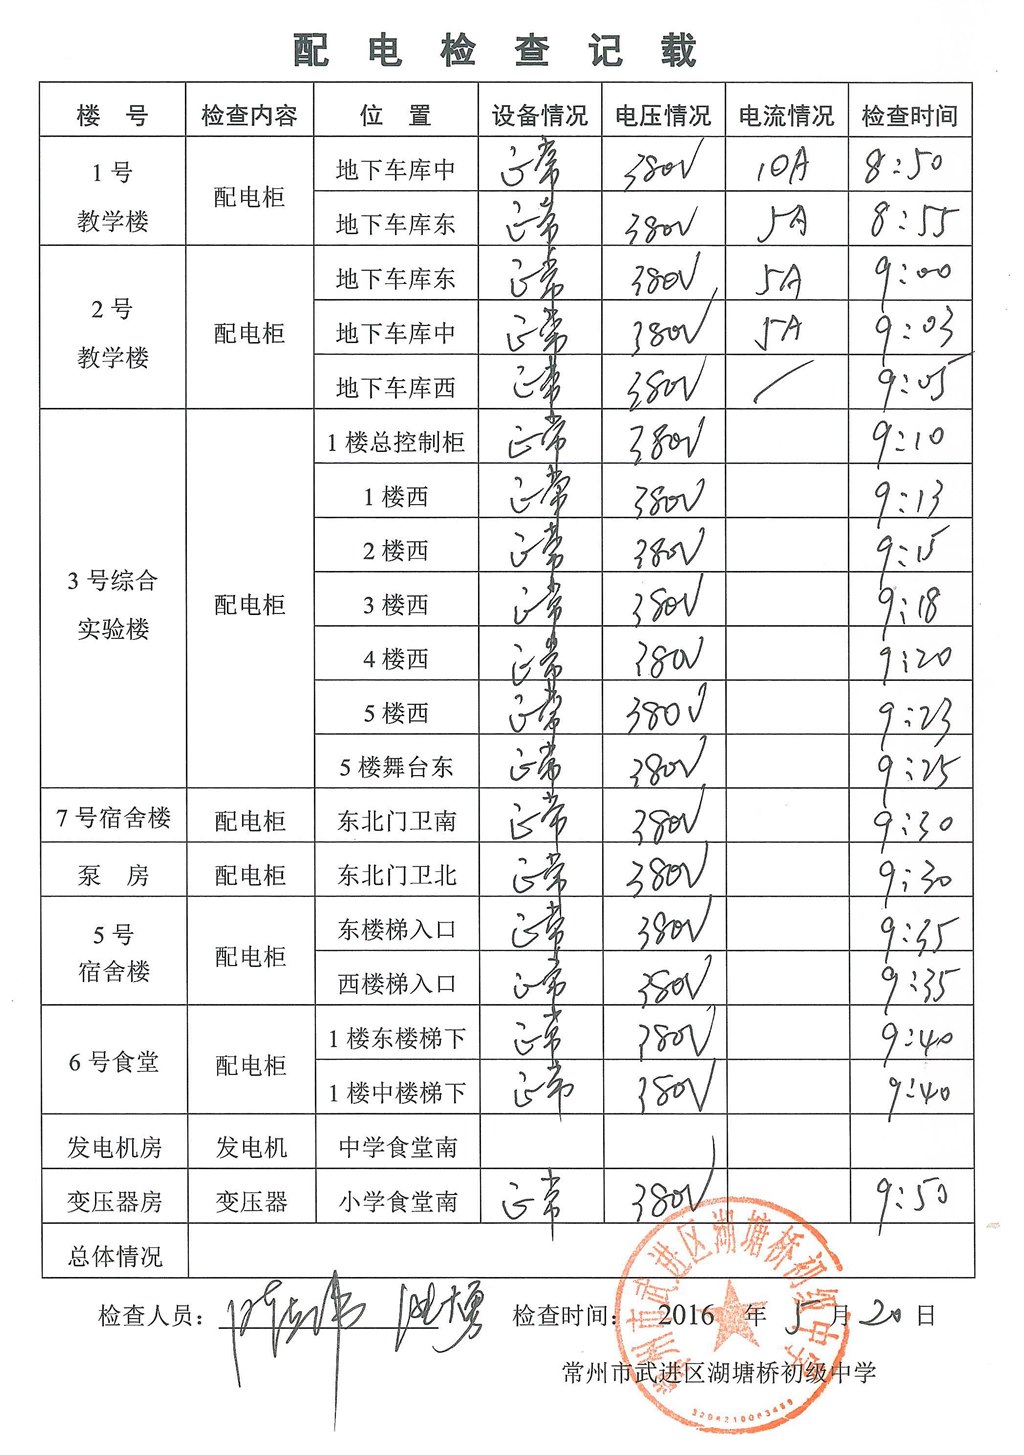 配电检查记载
楼 号 检查内容 位 置 设备情况 电压情况 电流情况 检查时间
1号教学楼 配电柜 地下车库中 正常 380V 10A 8:50
地下车库东 正常 380V 5A 8:55
2号教学楼 配电柜 地下车库东 正常 380V 5A 9:00
地下车库中 正常 380V 5A 9:03
地下车库西 正常 380V / 9:05
3号综合实验楼 配电柜 1楼总控制柜 正常 380V 9:10
1楼西 正常 380V 9:13
2楼西 正常 380V 9:15
3楼西 正常 380V 9:18
4楼西 正常 380V 9:20
5楼西 正常 380V 9:23
5楼舞台东 正常 380V 9:25
7号宿舍楼 配电柜 东北门卫南 正常 380V 9:30
泵 房 配电柜 东北门卫北 正常 380V 9:30
5号宿舍楼 配电柜 东楼梯入口 正常 380V 9:35
西楼梯入口 正常 380V 9:35
6号食堂 配电柜 1楼东楼梯下 正常 380V 9:40
1楼中楼梯下 正常 380V 9:40
发电机房 发电机 中学食堂南
变压器房 变压器 小学食堂南 正常 380V 9:50
总体情况
检查人员: 检查时间: 2016 年 5 月 20 日
常州市武进区湖塘桥初级中学
常州市武进区湖塘桥初级中学